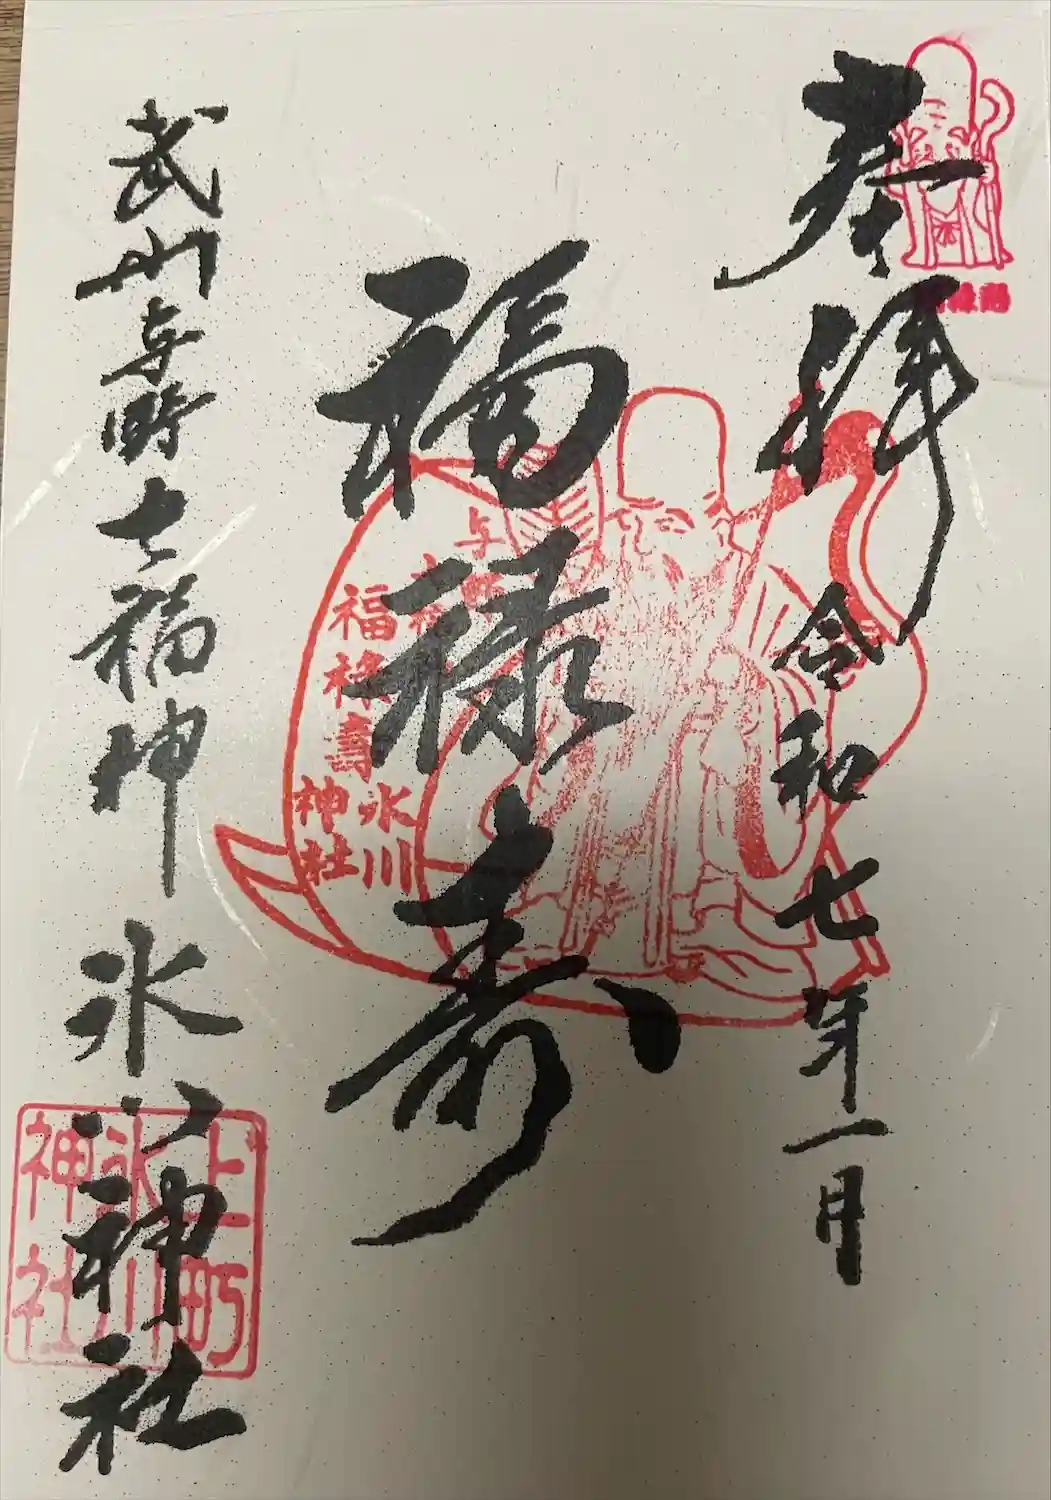 奉拝 令和七年一月
福禄寿
武州与野七福神 氷川神社
与野
福禄壽
氷川
神社
上町
氷川
神社